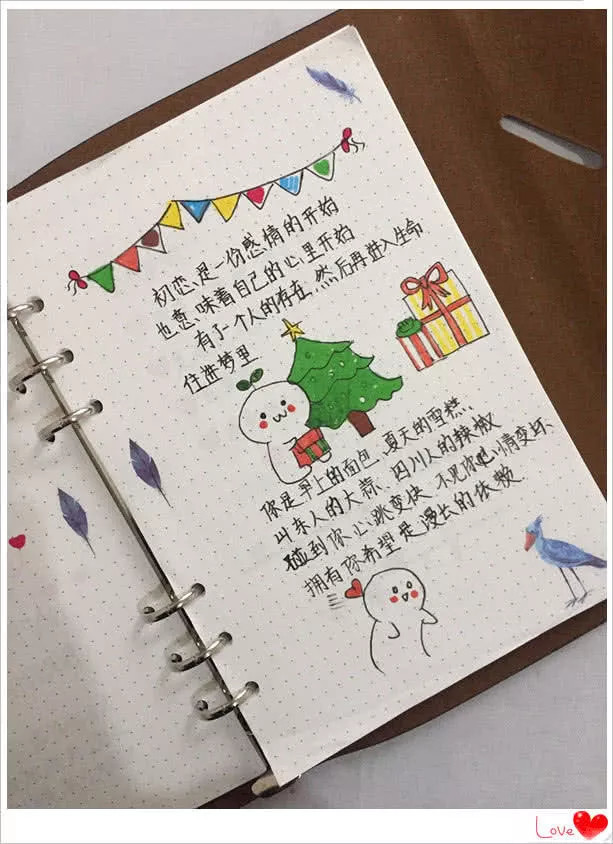 初恋，是一份感情的开始
也意味着自己的心里开始
有了一个人的存在，然后再进入生命
住进梦里
你是早上的面包、夏天的雪糕、
山东人的大蒜、四川人的辣椒
碰到你心跳变快 不见你心情变坏
拥有你希望是漫长的依赖
Love